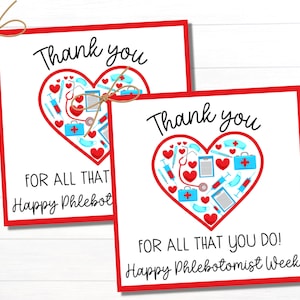 Thank you
FOR ALL THAT
Happy Phlebot
Thank you
FOR ALL THAT YOU DO!
Happy Phlebotomist Week